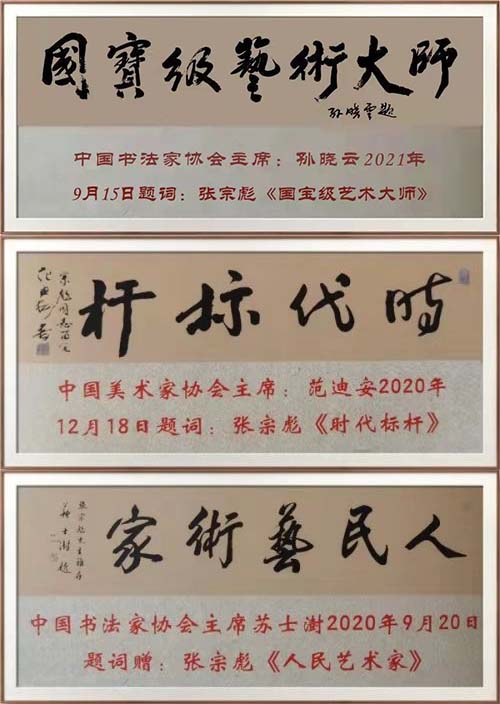 國寶级藝術大师
孙晓雲题
中国书法家协会主席：孙晓云2021年
9月15日题词：张宗彪《国宝级艺术大师》
时代标杆
中国美术家协会主席：范迪安2020年
12月18日题词：张宗彪《时代标杆》
人民藝術家
苏士澍题
中国书法家协会主席苏士澍2020年9月20日
题词赠：张宗彪《人民艺术家》